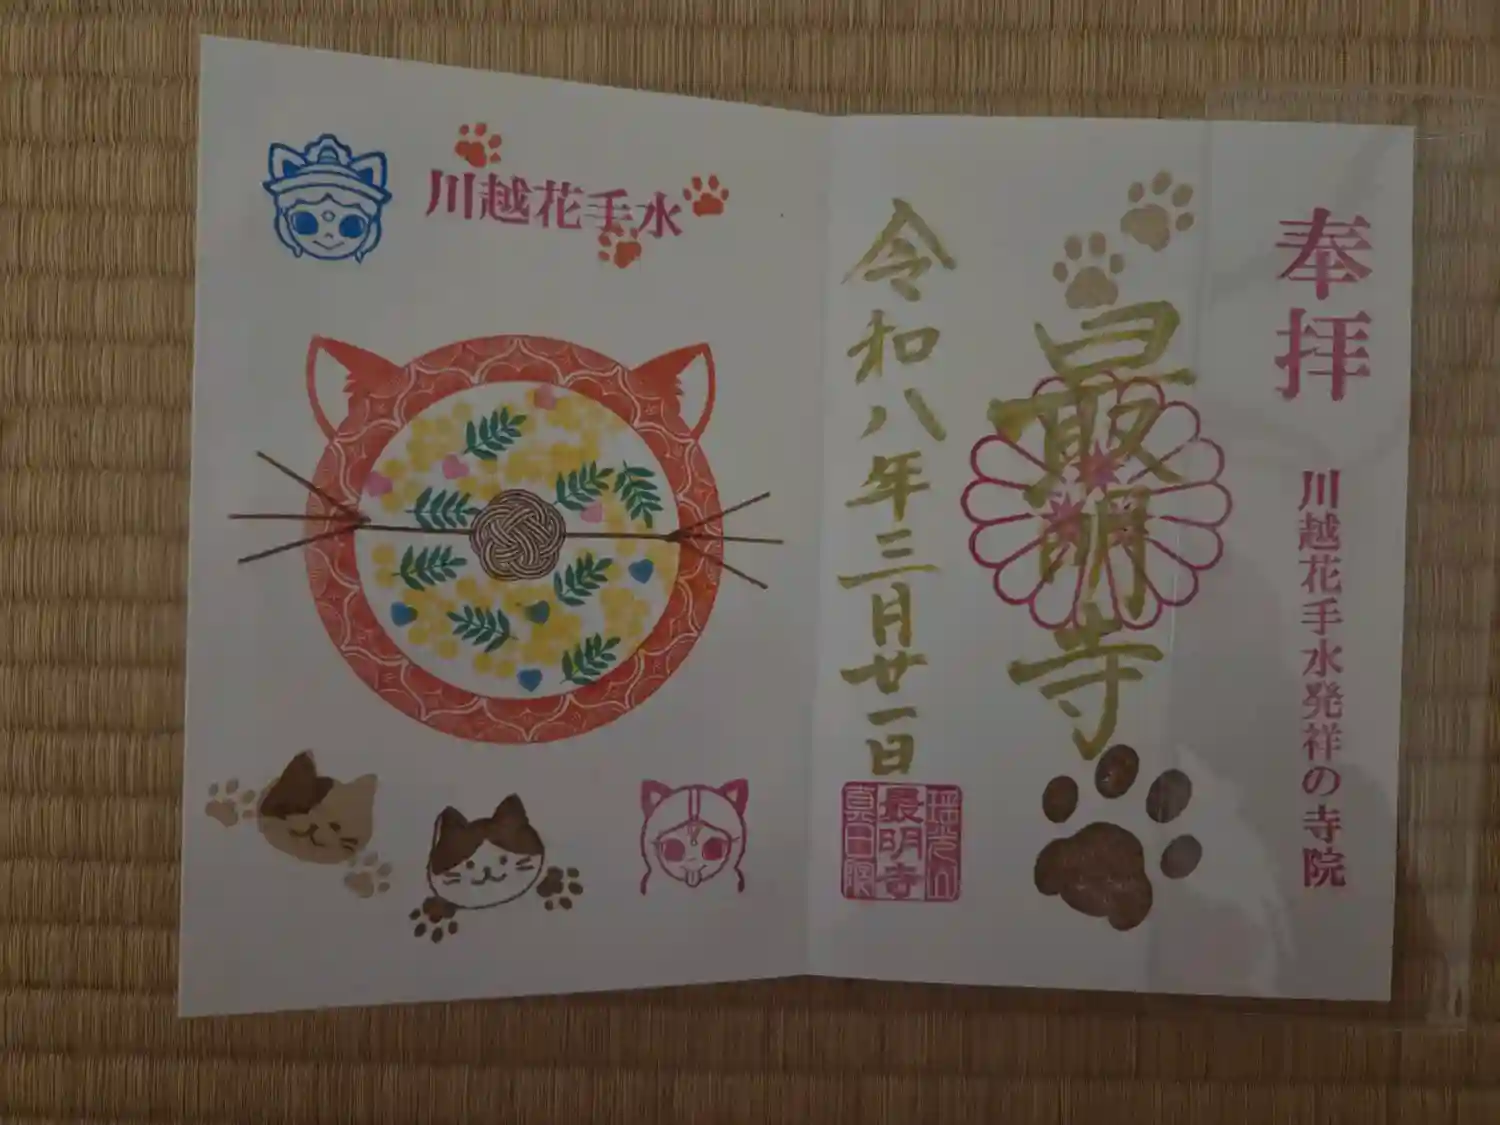 奉拝
川越花手水発祥の寺院
最明寺
令和八年三月廿一日
最明寺
川越花手水